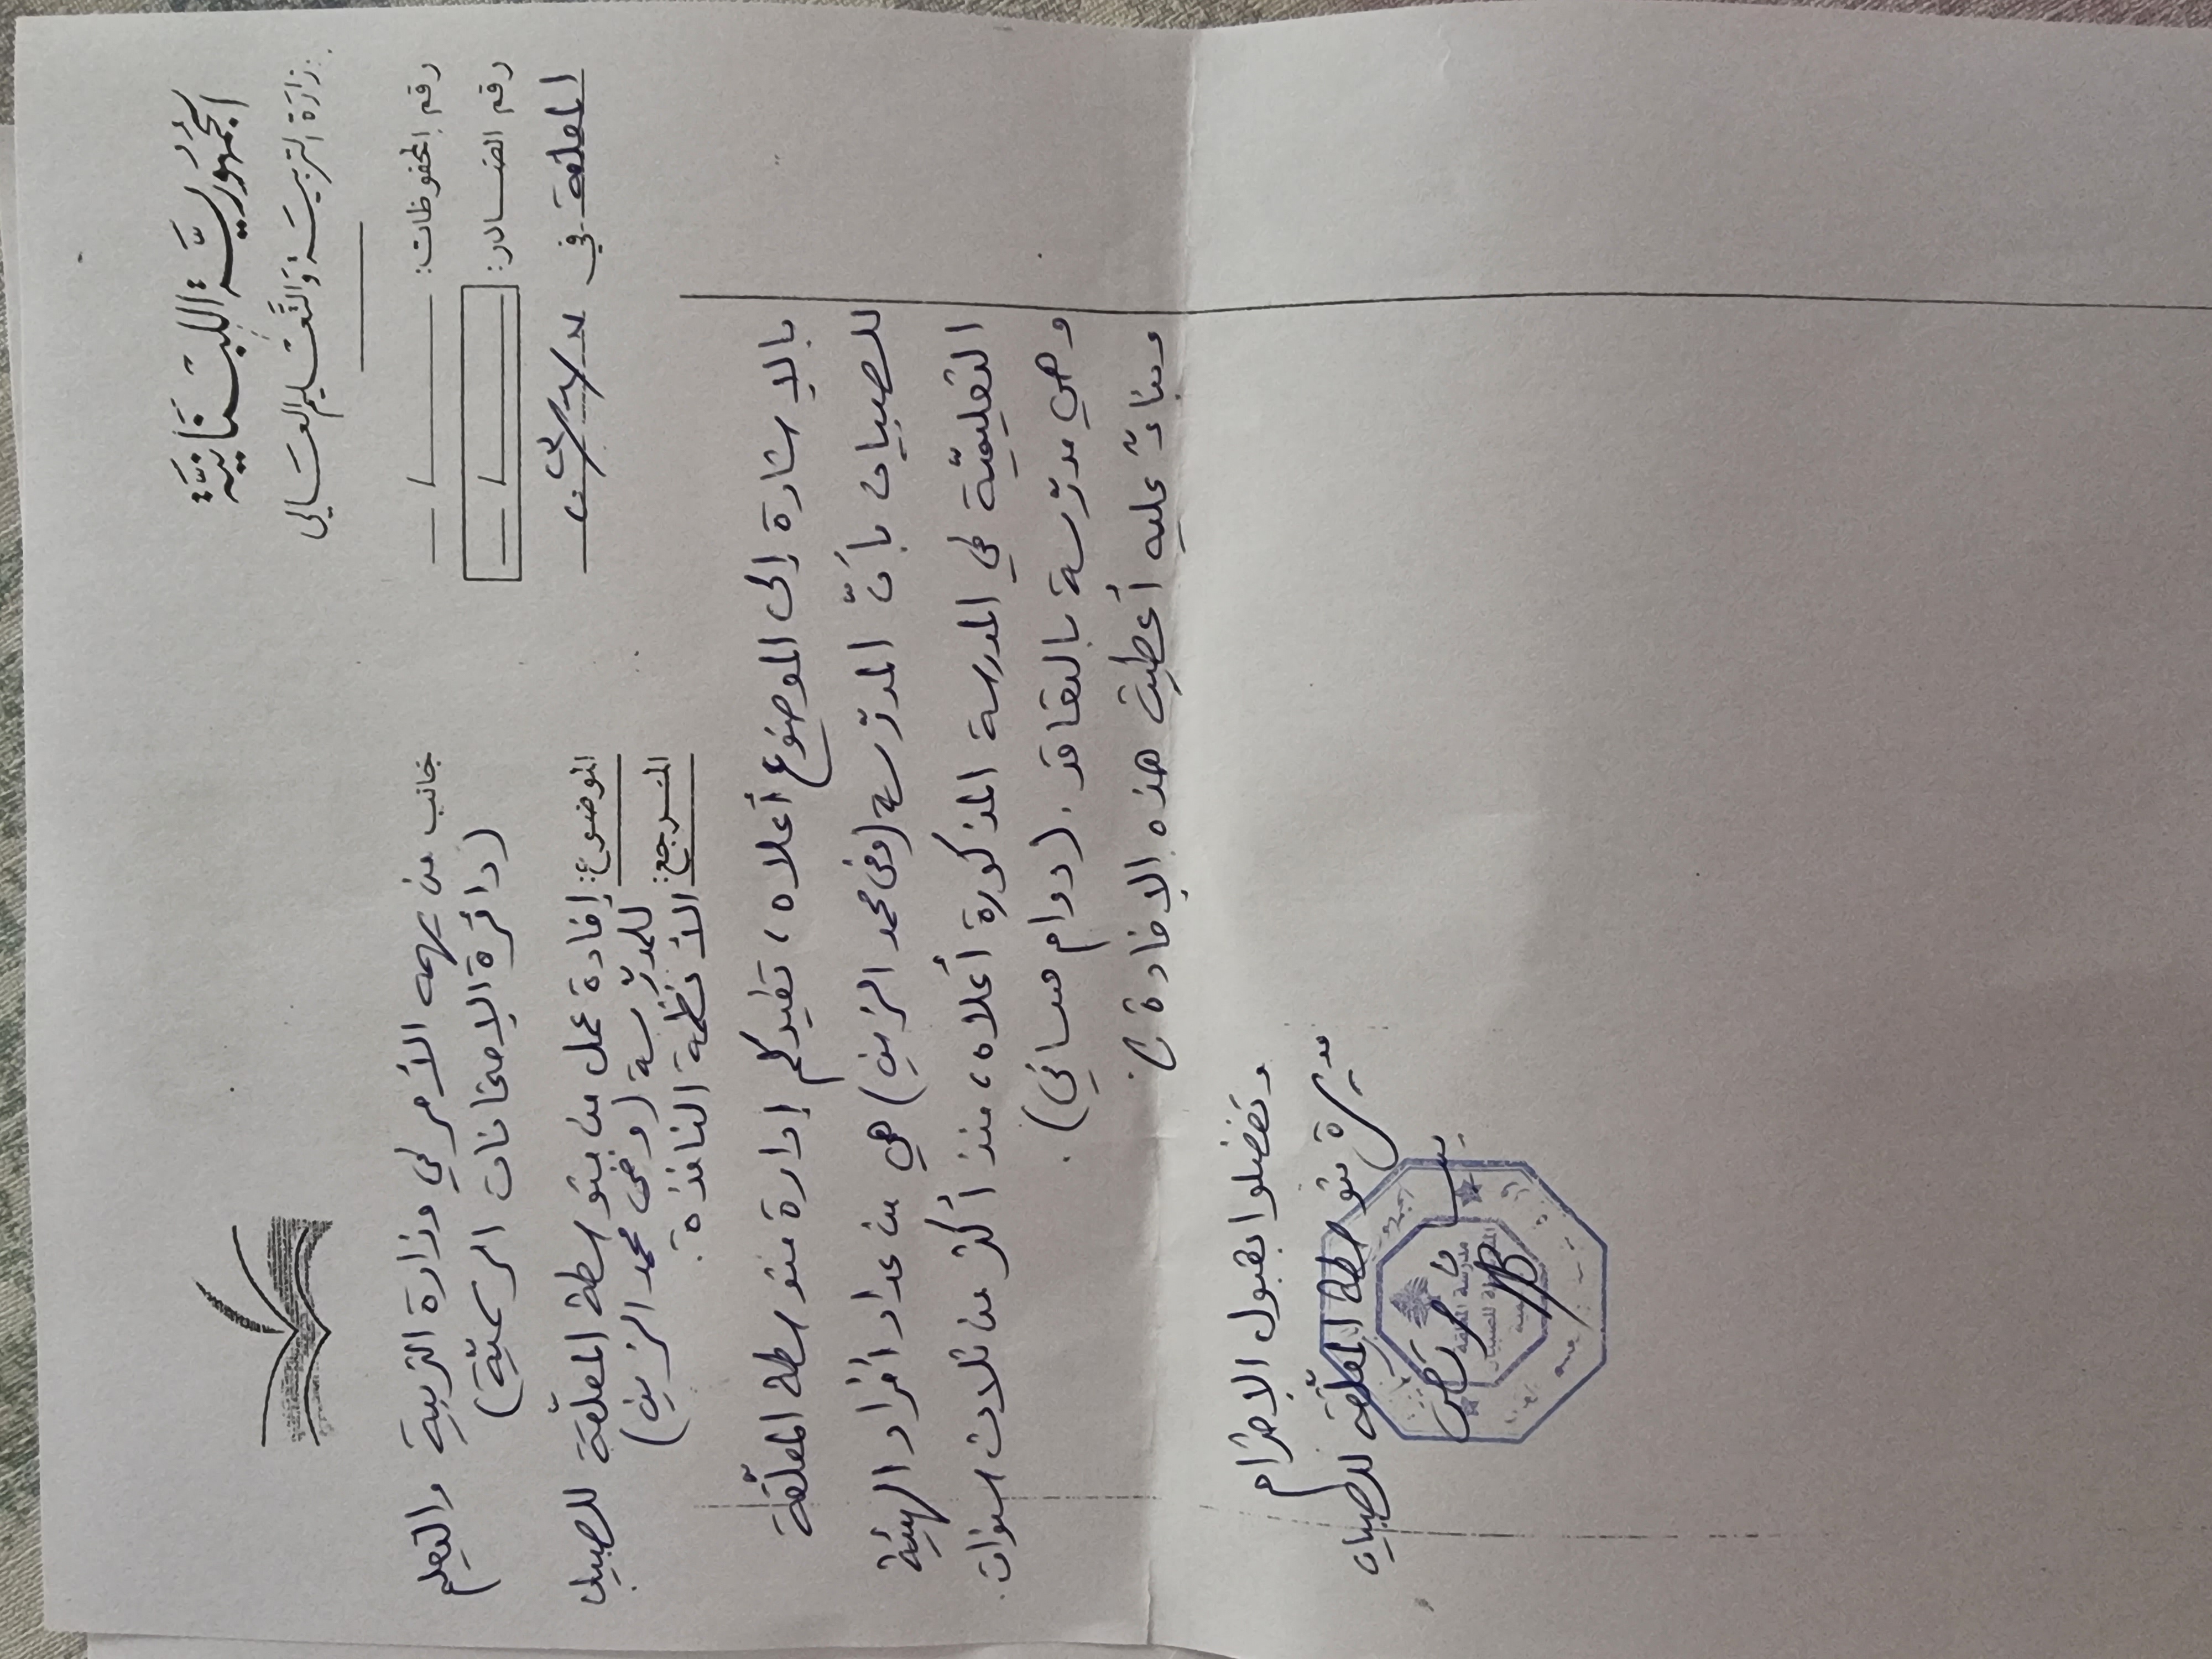 الجمهورية اللبنانية
وزارة التربية والتعليم العالي
رقم المحفوظات:
رقم الصادر:
المعلقة في
جانب من يهمه الأمر في وزارة التربية والتعليم
(دائرة الامتحانات الرسميّة)
الموضوع: إفادة عمل من متوسطة المعلّقة للصبيان
للمدرّسة (وفى محمد الزين)
المرجع: الأنظمة النافذة.
بالإشارة إلى الموضوع أعلاه، تفيدكم إدارة متوسطة المعلّقة
للصبيان بأنّ المدرّسة (وفى محمد الزين) هي من عداد افراد الهيئة
التعليميّة في المدرسة المذكورة أعلاه، منذ أكثر من ثلاث سنوات.
وهي مدرّسة بالتعاقد. (دوام مسائي).
وبناءً عليه أعطيت هذه الإفادة.
وتفضلوا بقبول الإحترام
مديرة متوسطة المعلّقة للصبيان